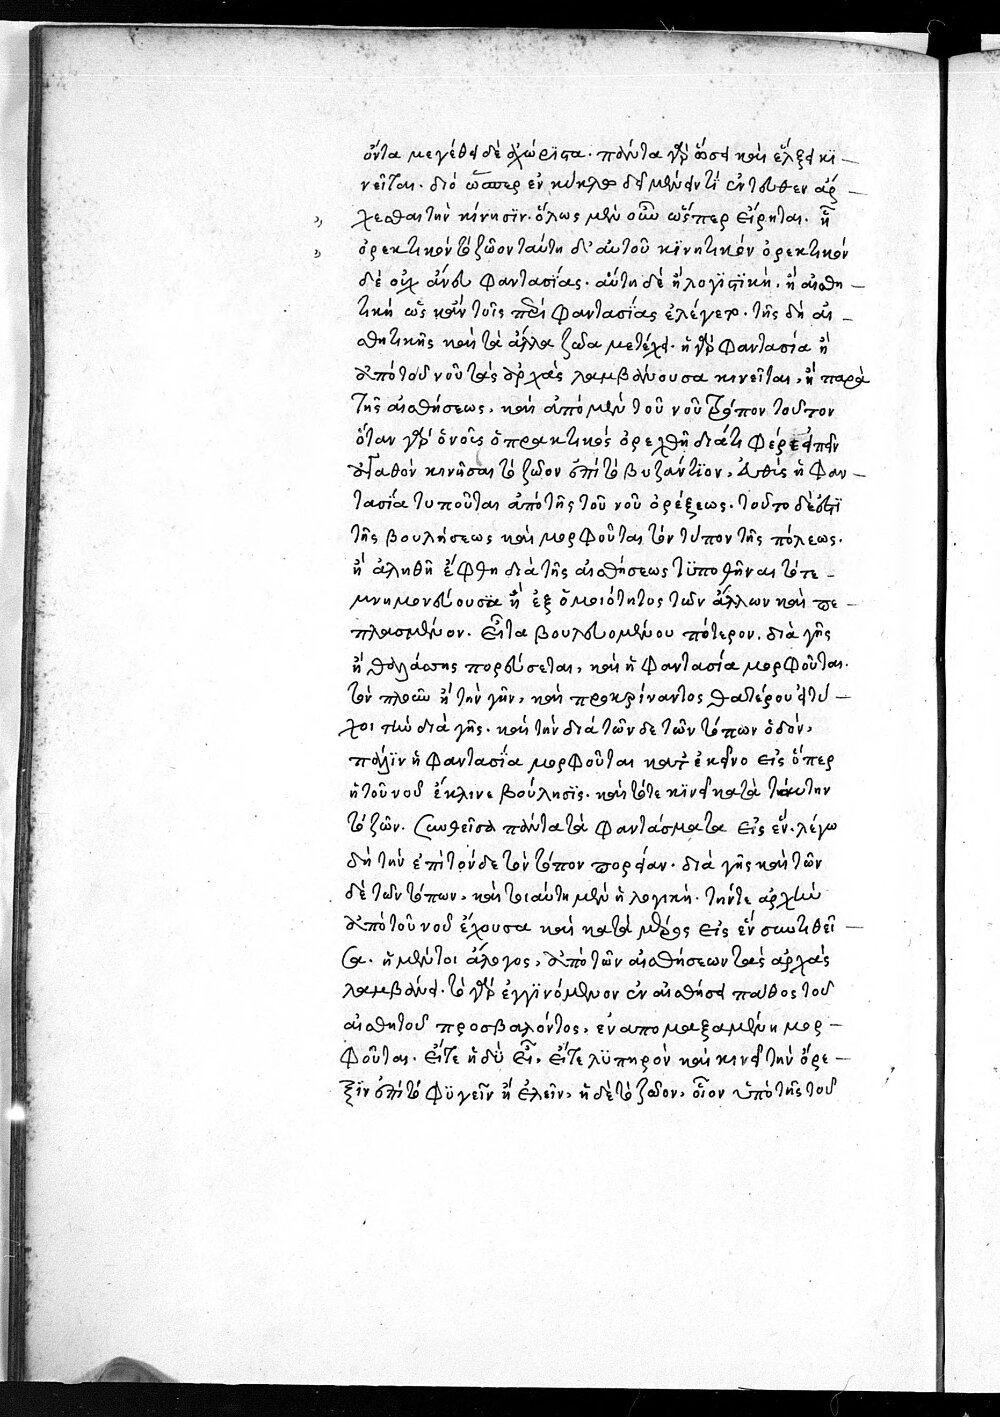 ὄντα μεγέθει δὲ ἀχώριστα. πάντα γὰρ ὤσει καὶ ἕλξει κι
νεῖται. διό ὥσπερ ἐν κύκλω δεῖ μένειν τί κἀντεῦθεν ἄρ
χεσθαι τὴν κίνησϊν. ὅλως μὲν οὖν ὥσπερ εἴρηται. ἧ
ὀρεκτικὸν τὸ ζῶον ταύτη δ' αὑτοῦ κϊνητικόν ὀρεκτικὸν
δὲ οὐχ ἄνευ φαντασίας. αὕτη δὲ ἢ λογϊστϊκὴ. ἢ αἰσθη
τικὴ ὡς κἀν τοῖς περὶ φαντασίας ἐλέγετο. τῆς δὴ αἰ
σθητικῆς καὶ τὰ ἄλλα ζῶα μετέχει. ἡ γὰρ φαντασία ἢ
ἀπὸ τοῦ νοῦ τὰς ἀρχὰς λαμβάνουσα κινεῖται, ἢ παρὰ
τῆς αἰσθήσεως, καὶ ἀπὸ μὲν τοῦ νοῦ τρόπον τοῦτον
ὅταν γὰρ ὁ νοῦς ὁ πρακτικὸς ὀρεχθῆ διά τι φέρε εἰπεῖν
ἀγαθὸν κινῆσαι τὸ ζῶον ἐπὶ τὸ βυζάντϊον, εὐθὺς ἡ φαν
τασία τυποῦται ἀπὸ τῆς τοῦ νοῦ ὀρέξεως. τοῦτο δέ ἐστϊ
τῆς βουλήσεως καὶ μορφοῦται τὸν τύπον τῆς πόλεως.
ἢ ἀληθῆ ἔφθη διὰ τῆς αἰσθήσεως τϋποθῆναι τότε
μνημονεύουσα ἢ ἐξ ὁμοιότητος τῶν ἄλλων καὶ πε
πλασμένον. εἶτα βουλευομένου πότερον, διὰ γῆς
ἢ θαλάσσης πορεύσεται, καὶ ἡ φαντασία μορφοῦται.
τὸν πλοῦν ἢ τὴν γῆν, καὶ προκρίναντος θατέρου εἰ τύ
χοι τοῦ διὰ γῆς. καὶ τὴν διὰ τῶν δε τῶν τόπων ὁδόν,
πάλϊν ἡ φαντασΐα μορφοῦται κατ' ἐκεῖνο εἰς ὅπερ
ἡ τοῦ νοῦ ἔκλινε βούλησϊς. καὶ τότε κϊνεῖ κατὰ ταύτην
τὸ ζῶον. συνθεῖσα πάντα τὰ φαντάσματα εἰς ἕν. λέγω
δὴ τὴν ἐπὶ τόνδε τὸν τόπον πορείαν. διὰ γῆς καὶ τῶν
δὲ τῶν τόπων, καὶ τοιαύτη μὲν ἡ λογικὴ. τήν τε ἀρχὴν
ἀπὸ τοῦ νοῦ ἔχουσα καὶ κατὰ μέρος εἰς ἓν συντιθεῖ
σα. ἡ μέντοι ἄλογος, ἀπὸ τῶν αἰσθήσεων τὰς ἀρχὰς
λαμβάνει. τὸ γὰρ ἐγγϊνόμενον ἐν αἰσθήσει πάθος τοῦ
αἰσθητοῦ προσβαλόντος, ἐναπομαξαμένη μορ
φοῦται. εἴτε ἡδὺ εἴη, εἴτε λϋπηρὸν καὶ κινεῖ τὴν ὄρε
ξϊν ἐπὶ τὸ φϋγεῖν ἢ ἑλεῖν, ἡ δὲ τὸ ζῶον, οἷον ὑπὸ τῆς τοῦ